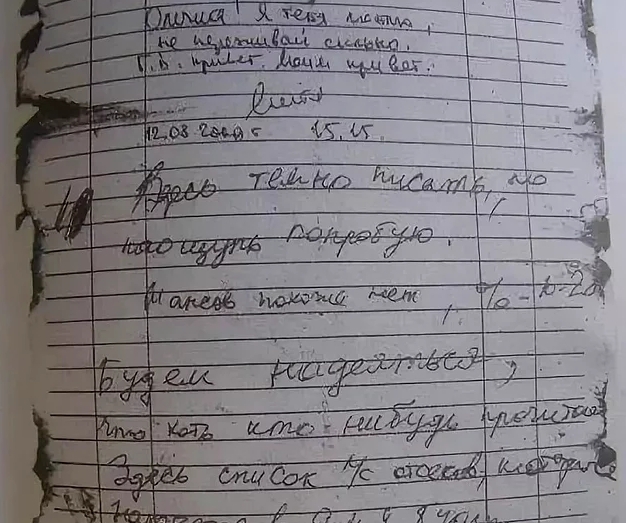 Олечка! Я тебя люблю,
не переживай сильно.
Г.В. привет. Моим привет.
Митя
12.08.2000 г 15.15.
Здесь темно писать, но
наощупь попробую.
Шансов похоже нет, %-10-20
Будем надеяться,
что хоть кто-нибудь прочитает
Здесь список л/с отсеков, которые